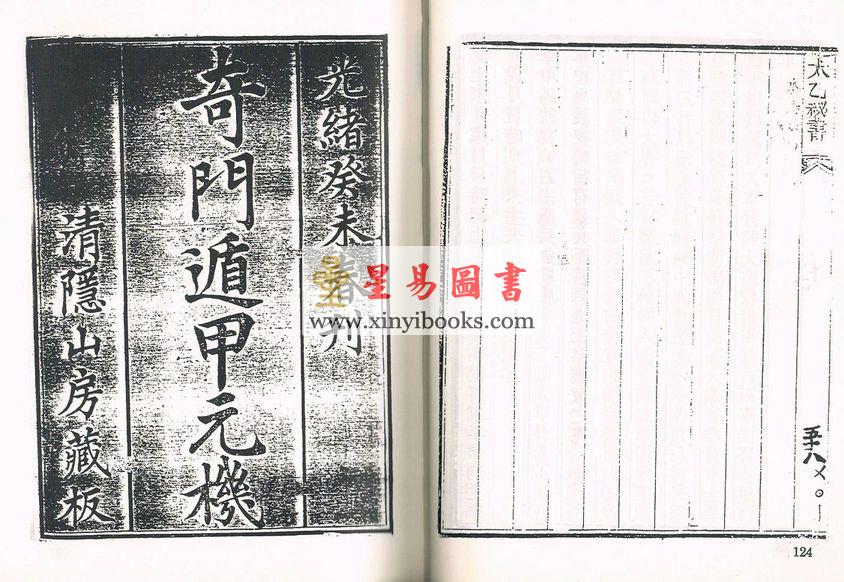 太乙秘書
五十八
124
光緒癸未春刊
奇門遁甲元機
清隱山房藏板
星易圖書
www.xinyibooks.com